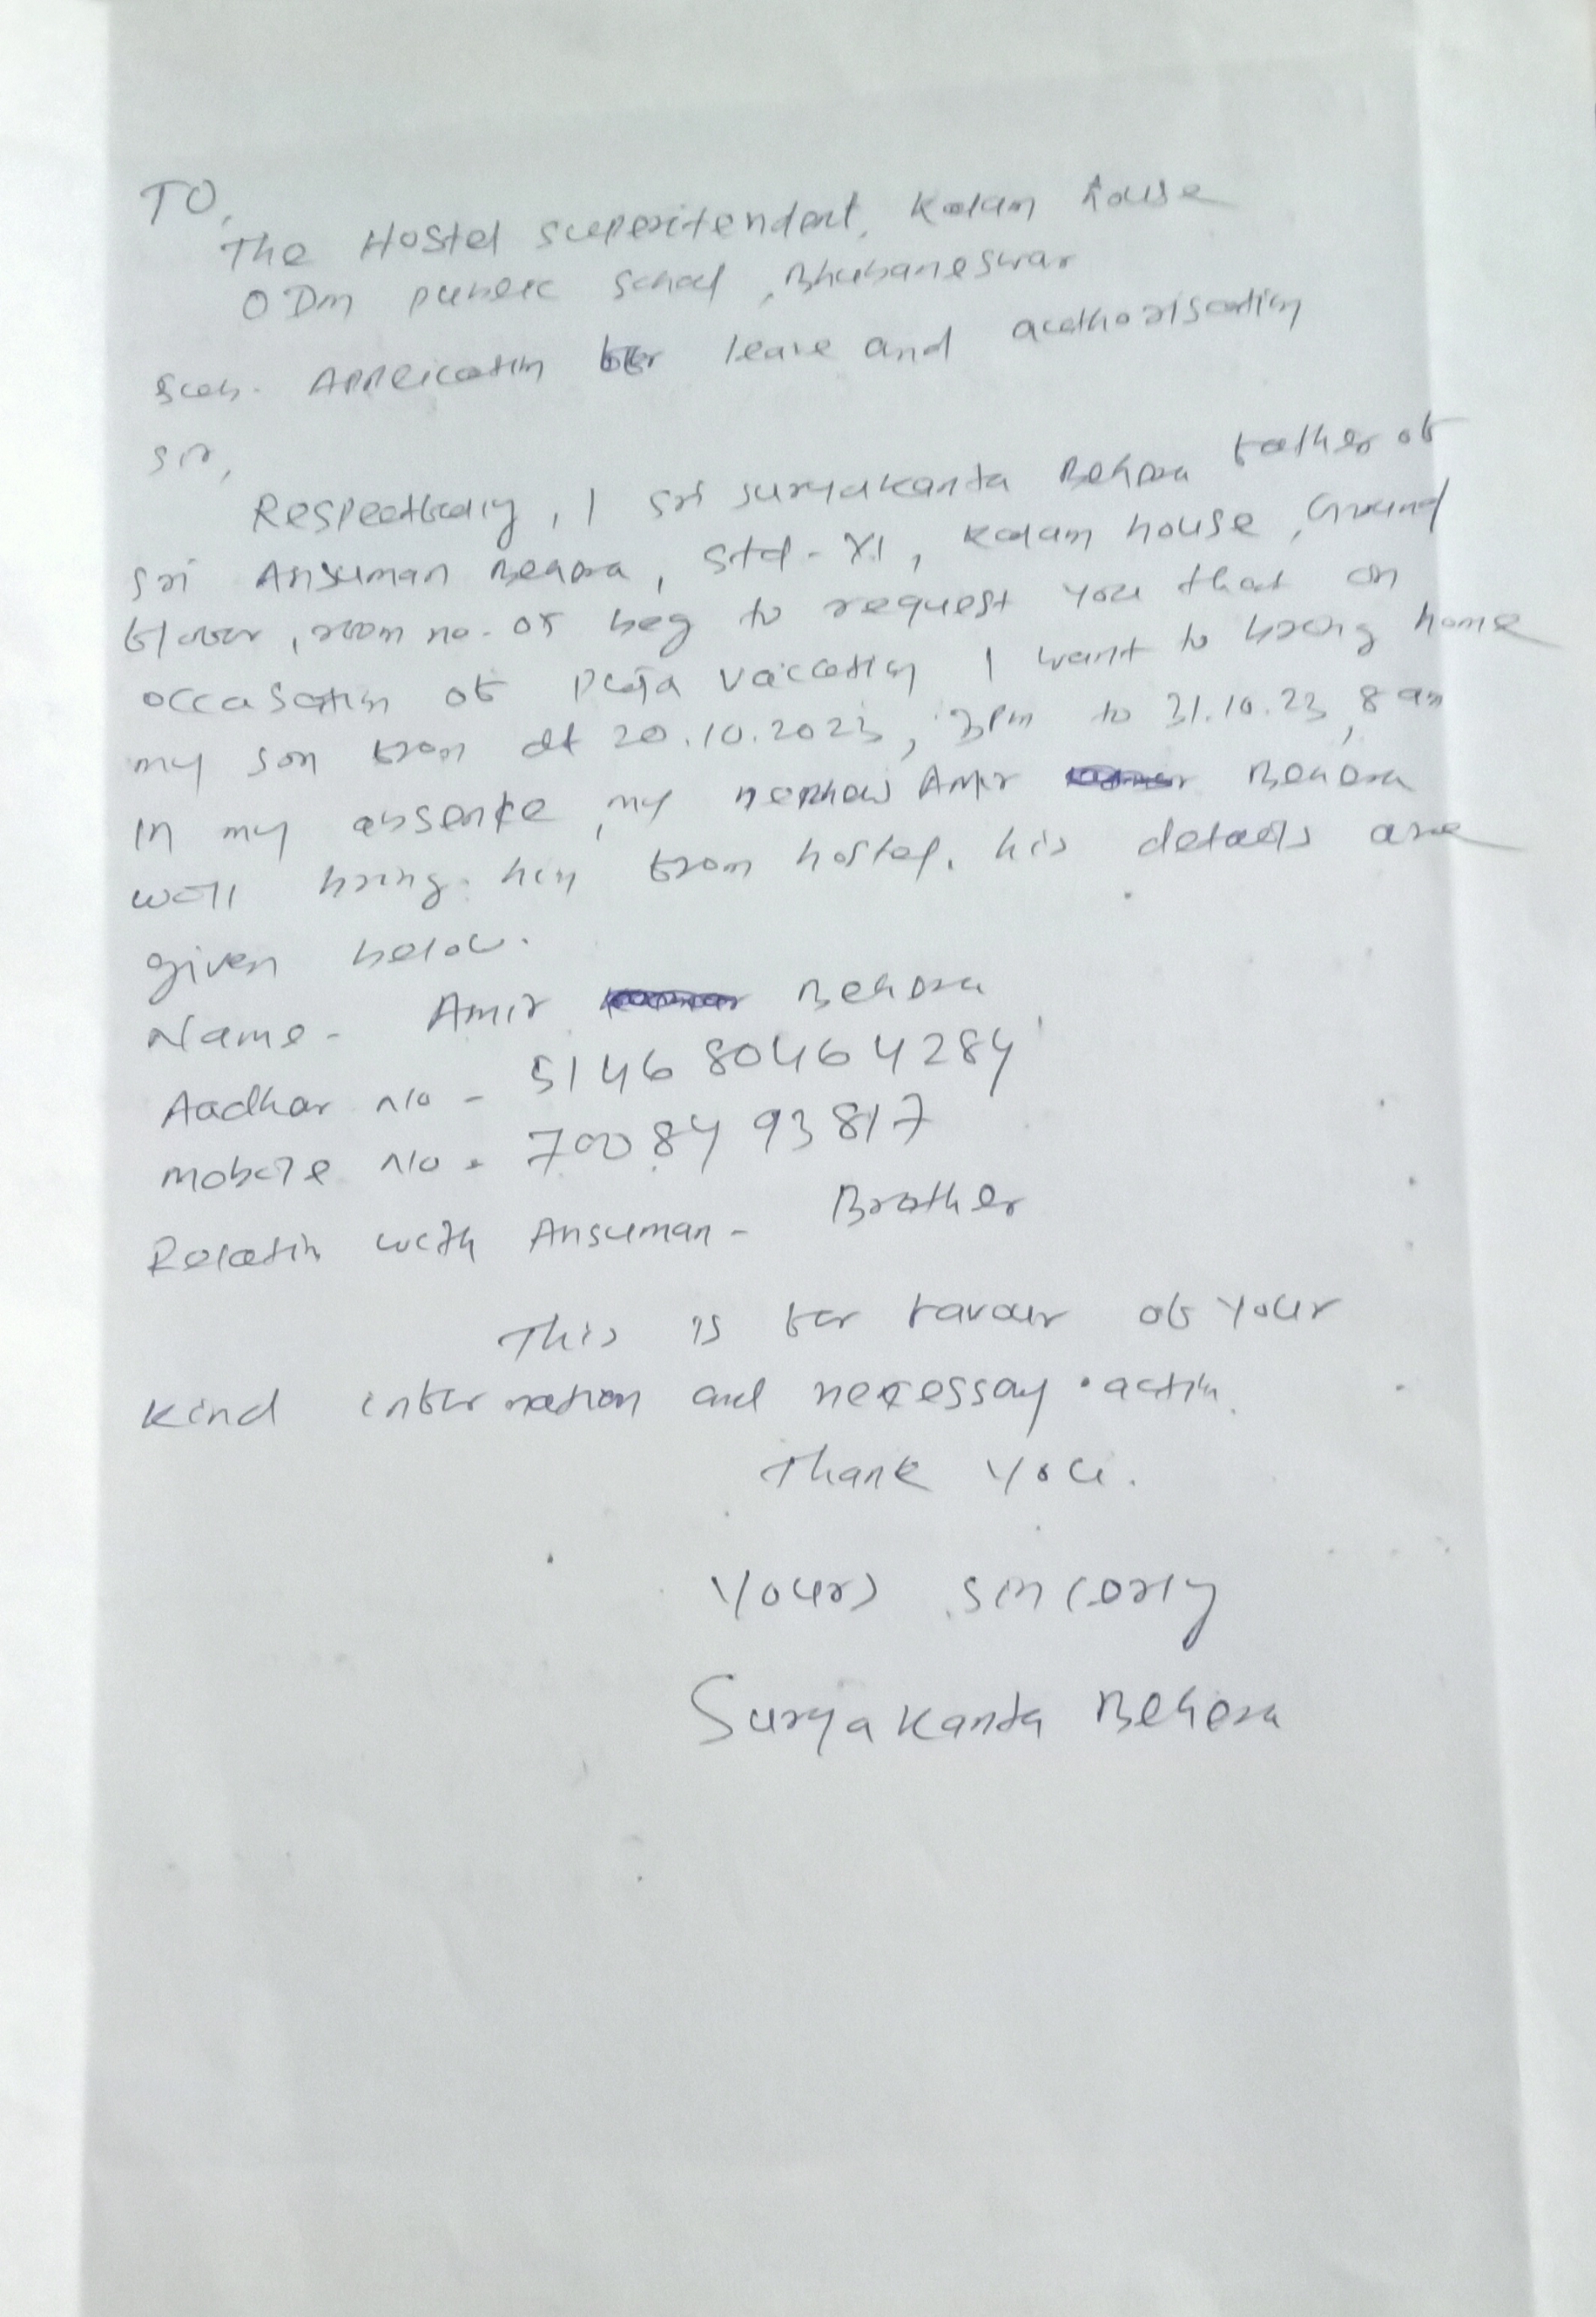 TO,
The Hostel superitendent, Kalam house
ODM public school, Bhubaneswar
Sub- Application for leave and authorisation
Sir,
Respectfully, I Sri Suryakanta Behera father of
Sri Ansuman Behera, Std- XI, Kalam house, Ground
floor, room no- 05 beg to request you that on
occasation of Puja vaccation I want to bring home
my son from dt 20.10.2023, 3pm to 31.10.23, 8 am
In my absence, my nephew Amir Behera
will bring him from hostel. his details are
given below.
Name- Amir Behera
Aadhar No - 5146 80464284
Mobile No - 7008493817
Relation with Ansuman- Brother
This is for favour of your
kind information and necessay action.
Thank you.
Yours sincerly
Suryakanta Behera